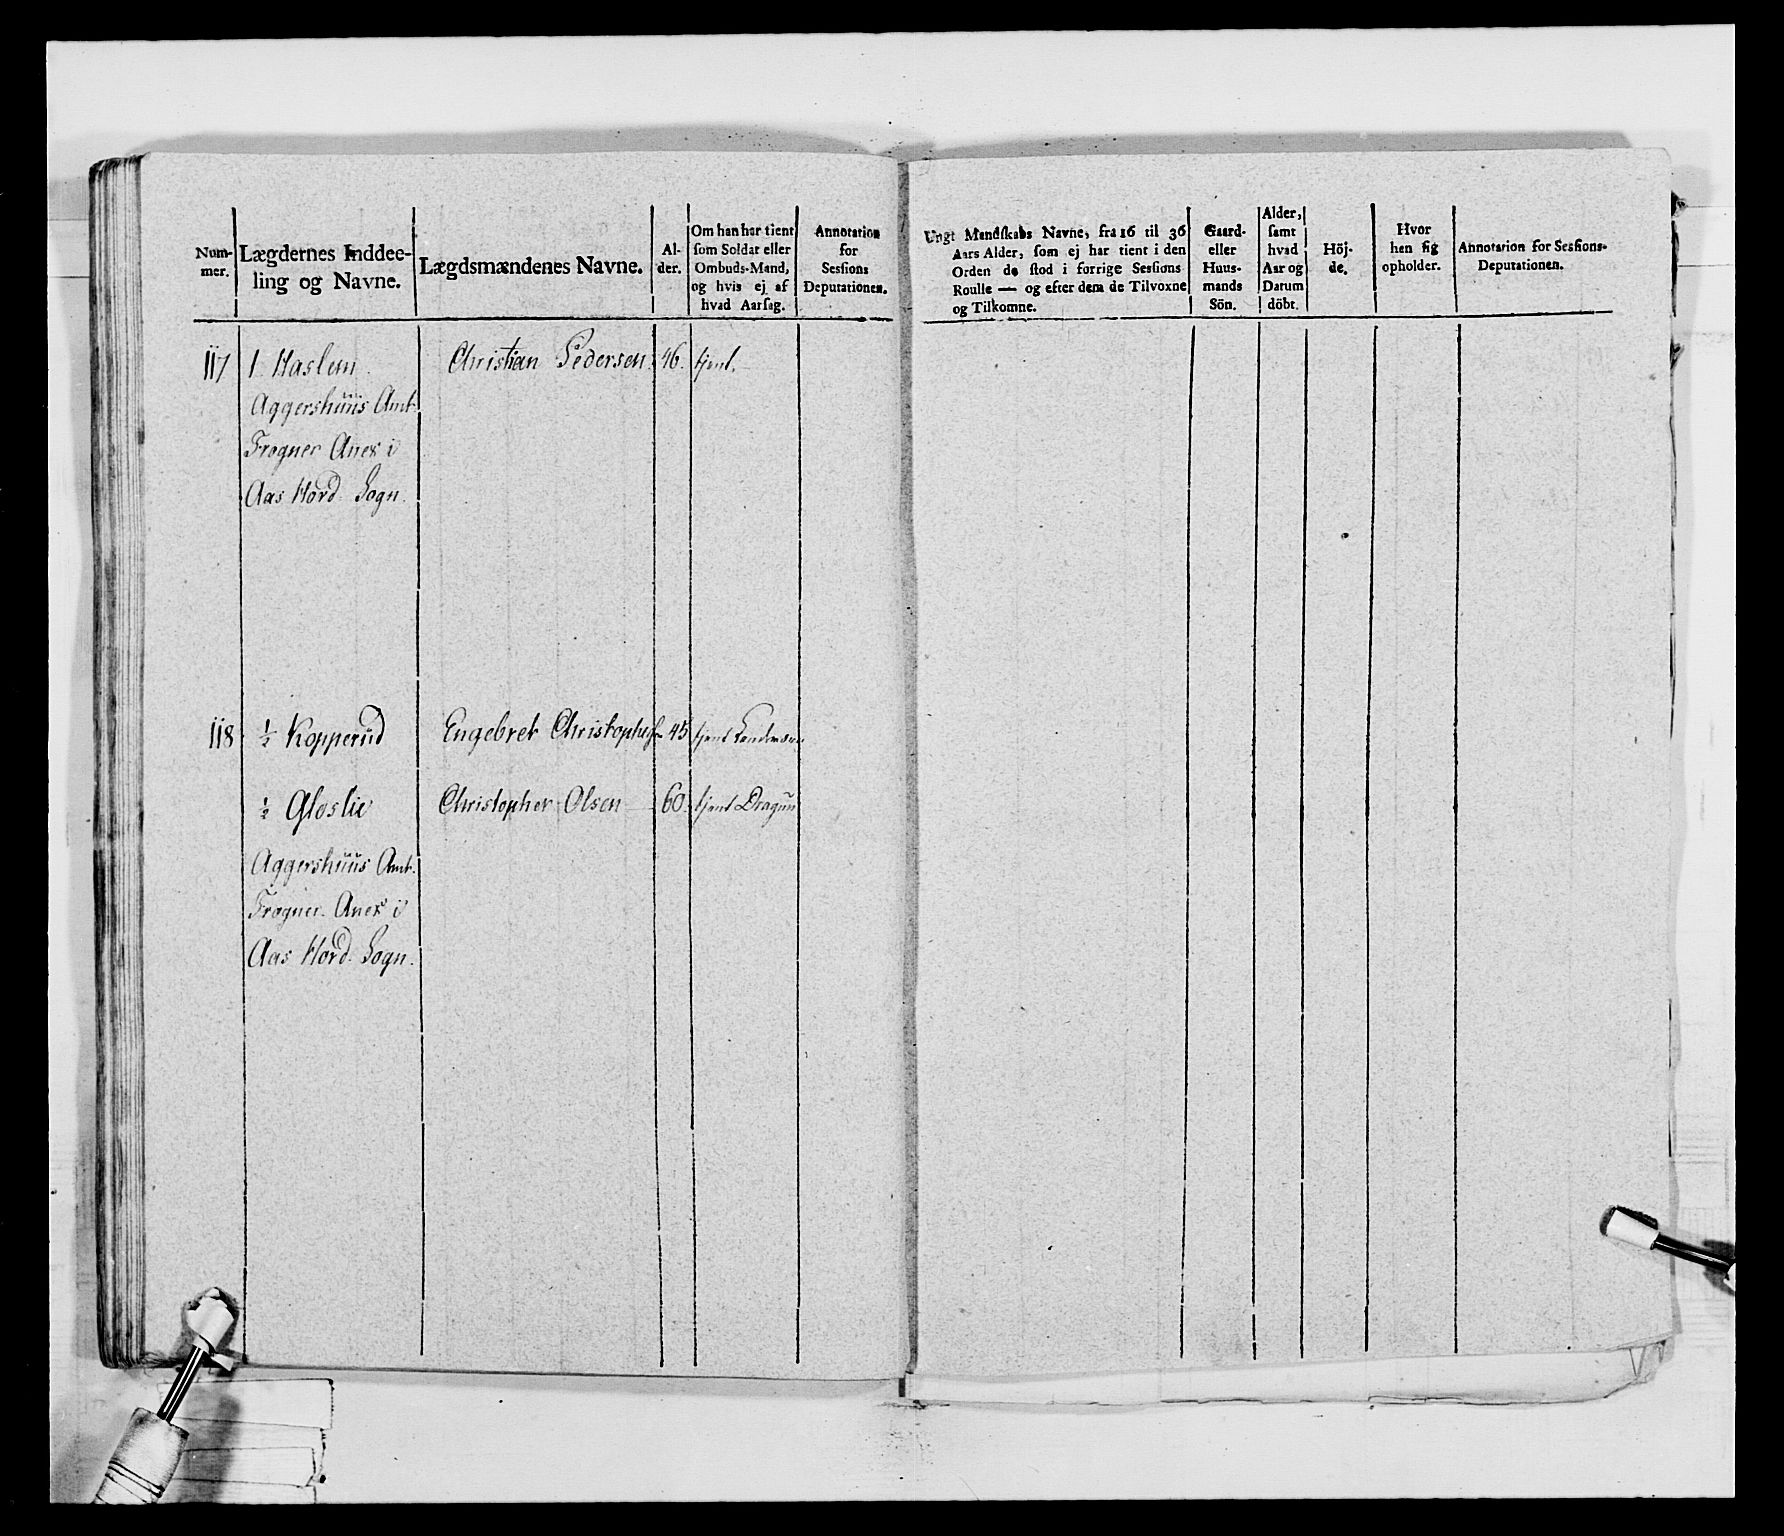 Num-
mer.
Lægdernes Inddee-
ling og Navne.
Lægdsmændenes Navne.
Al-
der.
Om han har tient
som Soldat eller
Ombuds-Mand,
og hvis ej af
hvad Aarsag.
Annotation
for
Sessions
Deputationen.
117 1 Haslem Christian Pedersen 46. tjent.
Aggershuus Amt
Frogner Anex i
Aas Hord. Sogn.
118 ½ Kopperud Engebret 45 tjent
½ Gloslie Christopher Olsen 60. tjent Dragun
Aggershuus Amt.
Frogner Anex i
Aas Hord. Sogn.
Ungt Mandskabs Navne, fra 16 til 36
Aars Alder, som ej har tient i den
Orden de stod i forrige Sessions
Roulle — og efter dem de Tilvoxne
og Tilkomne.
Gaard-
eller
Huus-
mands
Sön.
Alder,
samt
hvad
Aar og
Datum
döbt.
Höj-
de.
Hvor
han sig
opholder.
Annotation for Sessions-
Deputationen.